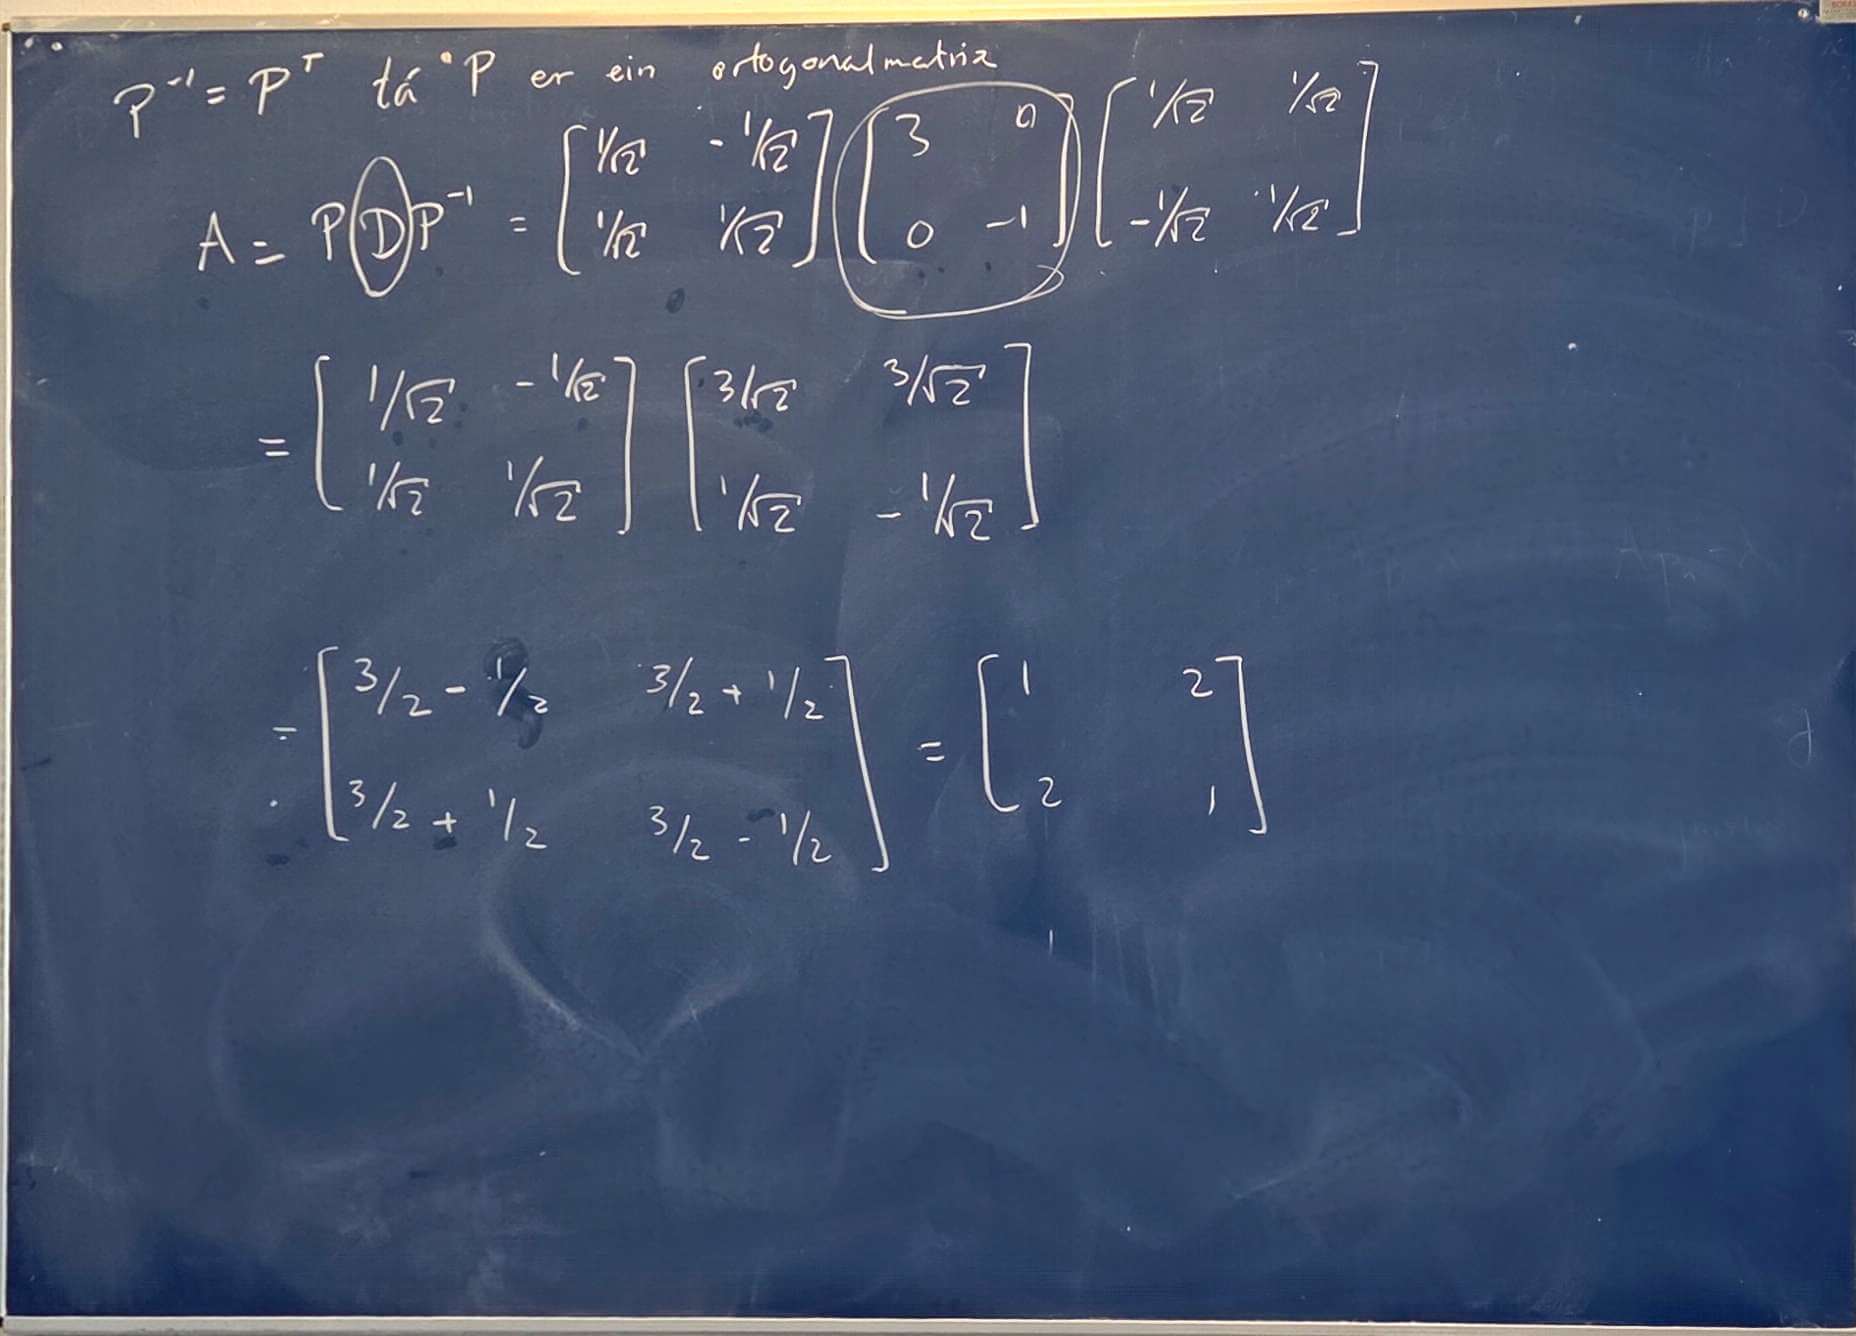 P⁻¹ = Pᵀ tá P er ein ortogonalmatrix
A = PDP⁻¹ = [1/√2 -1/√2; 1/√2 1/√2] [3 0; 0 -1] [1/√2 1/√2; -1/√2 1/√2]
= [1/√2 -1/√2; 1/√2 1/√2] [3/√2 3/√2; 1/√2 -1/√2]
= [3/2 - 1/2 3/2 + 1/2; 3/2 + 1/2 3/2 - 1/2] = [1 2; 2 1]